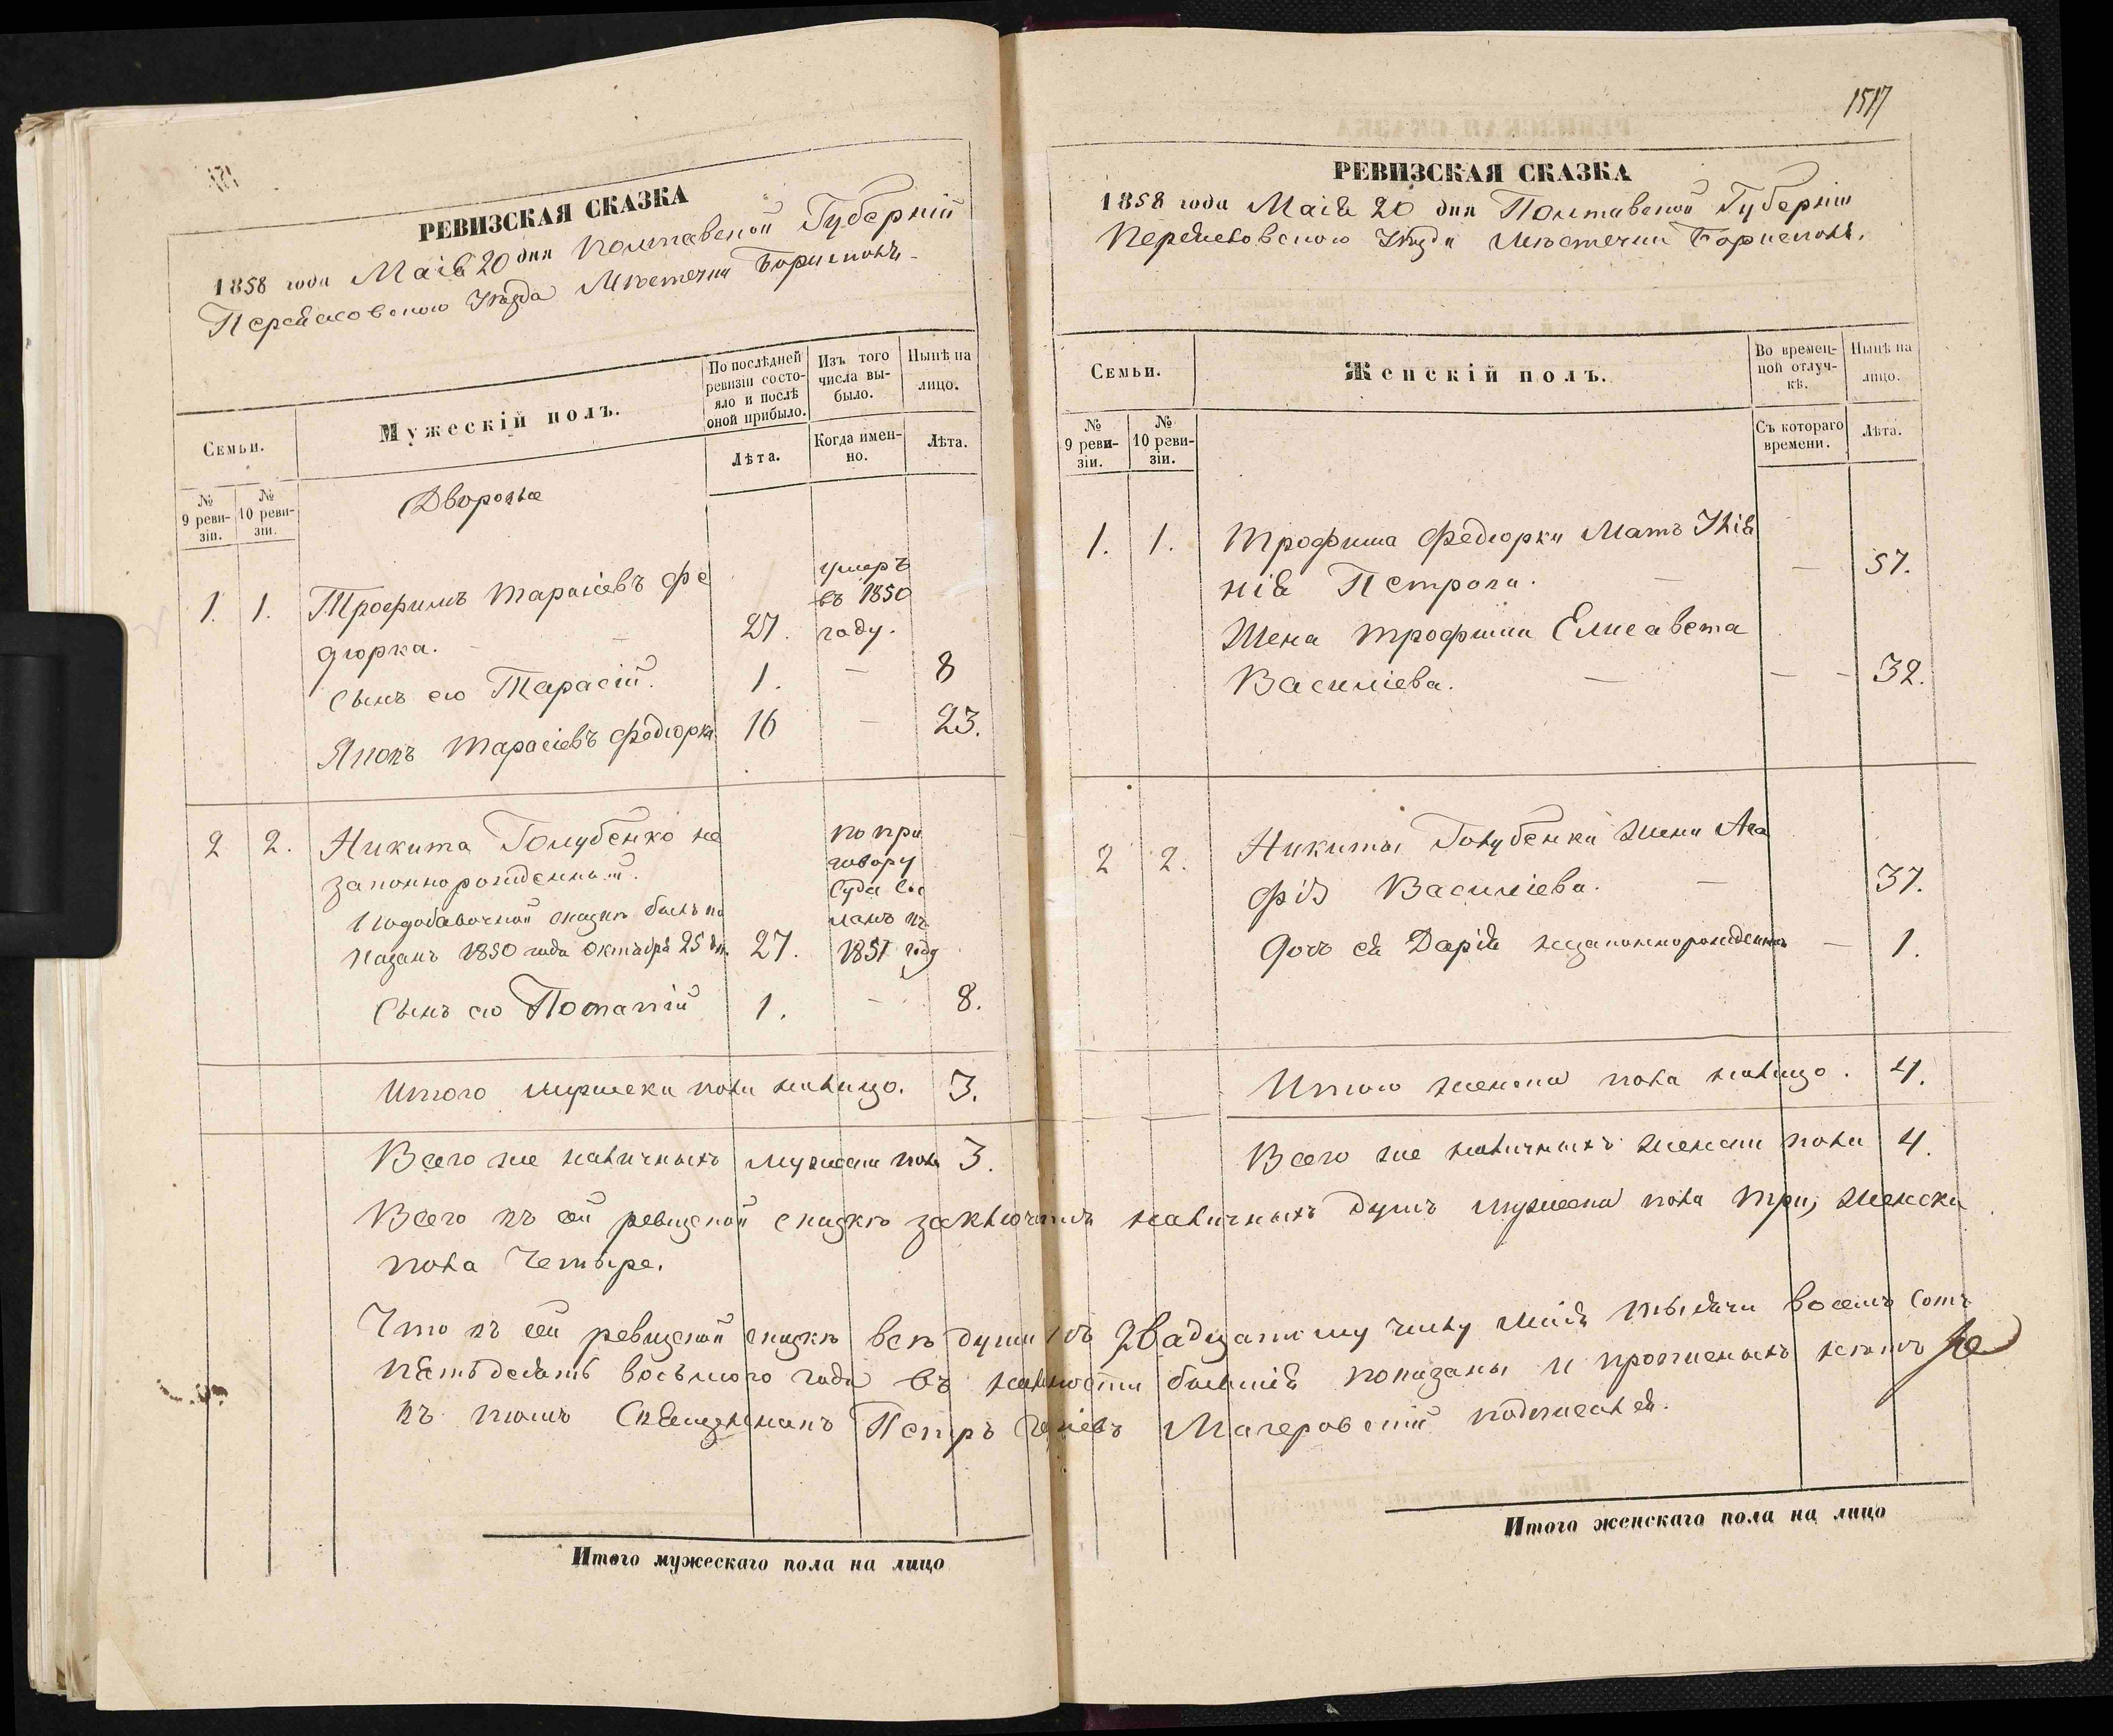 РЕВИЗСКАЯ СКАЗКА
1858 года Маія 20 дня Полтавской Губерніи
Переясловского Уѣзда Мѣстечка Борисполя
Семьи.
Мужескій полъ.
По послѣдней ревизіи состояло и послѣ оной прибыло.
Изъ того числа выбыло.
Нынѣ на лицо.
№ 9 ревизіи.
№ 10 ревизіи.
Лѣта.
Когда именно.
Лѣта.
Дворовые
1. 1. Трофимъ Тарасіевъ Фе
дюрка. 27. умеръ въ 1850 году.
Сынъ его Тарасій. 1. — 8
Тарасіевъ Федюрка 16 — 23.
2 2. Никита Голубенко не
законнорожденный.
По добавочной сказкѣ былъ по
казанъ 1850 года Октября 25 дн. 27. по при говору Суда сосланъ въ 1851 году
Сынъ его Потапій 1. — 8.
Итого мужеска пола налицо. 3.
Всего же наличныхъ мужеска пола 3.
Итого мужескаго пола на лицо
1517
РЕВИЗСКАЯ СКАЗКА
1858 года Маія 20 дня Полтавской Губерніи
Переясловского Уѣзда Мѣстечка Борисполя.
Семьи.
Женскій полъ.
Во временной отлучкѣ.
Нынѣ на лицо.
№ 9 ревизіи.
№ 10 ревизіи.
Съ котораго времени.
Лѣта.
1. 1. Трофима Федюрки Мать
Петрова. — — 57.
Жена Трофима Елисавета
Василіева. — — — 32.
2 2. Никиты Голубенка жена Ага
фія Василіева. — 37.
Дочь ея Дарія незаконнорожденна — 1.
Итого женска пола налицо. 4.
Всего же наличныхъ женска пола 4.
Всего въ сей ревизской сказкѣ заключается наличныхъ душъ мужеска пола три, женска
пола четыре.
Что въ сей ревизской сказкѣ всѣ души къ двадцатому числу Маія тысячи восемь сотъ
пятьдесятъ восьмого года въ наличности бывшія показаны и прописныхъ нетъ
въ томъ Священникъ Петръ Мачеровскій подписался.
Итого женскаго пола на лицо